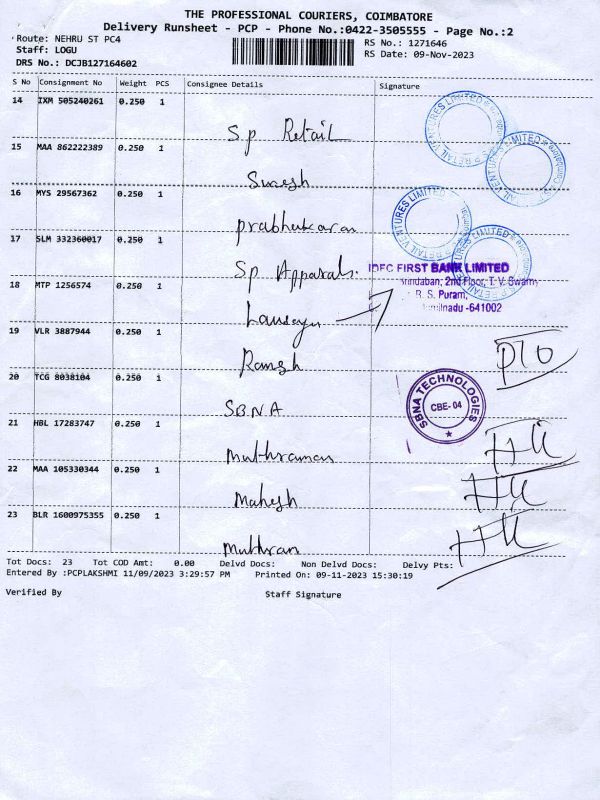 THE PROFESSIONAL COURIERS, COIMBATORE
Delivery Runsheet - PCP - Phone No.:0422-3505555 - Page No.:2
Route: NEHRU ST PC4
RS No.: 1271646
Staff: LOGU
RS Date: 09-Nov-2023
DRS No.: DCJB127164602
S No Consignment No Weight PCS Consignee Details Signature
14 IXM 505240261 0.250 1
S.p Retail
15 MAA 862222389 0.250 1
Suresh
16 MYS 29567362 0.250 1
prabhakaran
17 SLM 332360017 0.250 1
Sp Apparals.
IDFC FIRST BANK LIMITED
2nd Floor, T. V. Swamy
R. S. Puram,
Tamilnadu -641002
18 MTP 1256574 0.250 1
19 VLR 3887944 0.250 1
Ramesh
20 TCG 8038104 0.250 1
S.B.N.A
SBNA TECHNOLOGIES
CBE- 04
21 HBL 17283747 0.250 1
Muthraman
22 MAA 105330344 0.250 1
Mahesh
23 BLR 1600975355 0.250 1
Muthran
Tot Docs: 23 Tot COD Amt: 0.00 Delvd Docs: Non Delvd Docs: Delvy Pts:
Entered By :PCPLAKSHMI 11/09/2023 3:29:57 PM Printed On: 09-11-2023 15:30:19
Verified By Staff Signature